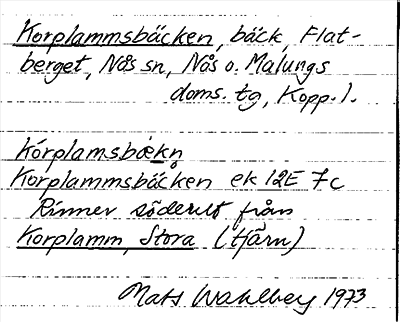 Korplammsbäcken, bäck, Flat-
berget, Nås sn, Nås o. Malungs
doms. tg, Kopp. l.
kórplamsbɑ̀kn̥
Korplammsbäcken ek 12E 7c
Rinner söderut från
Korplamm, Stora (tjärn)
Mats Wahlberg 1973